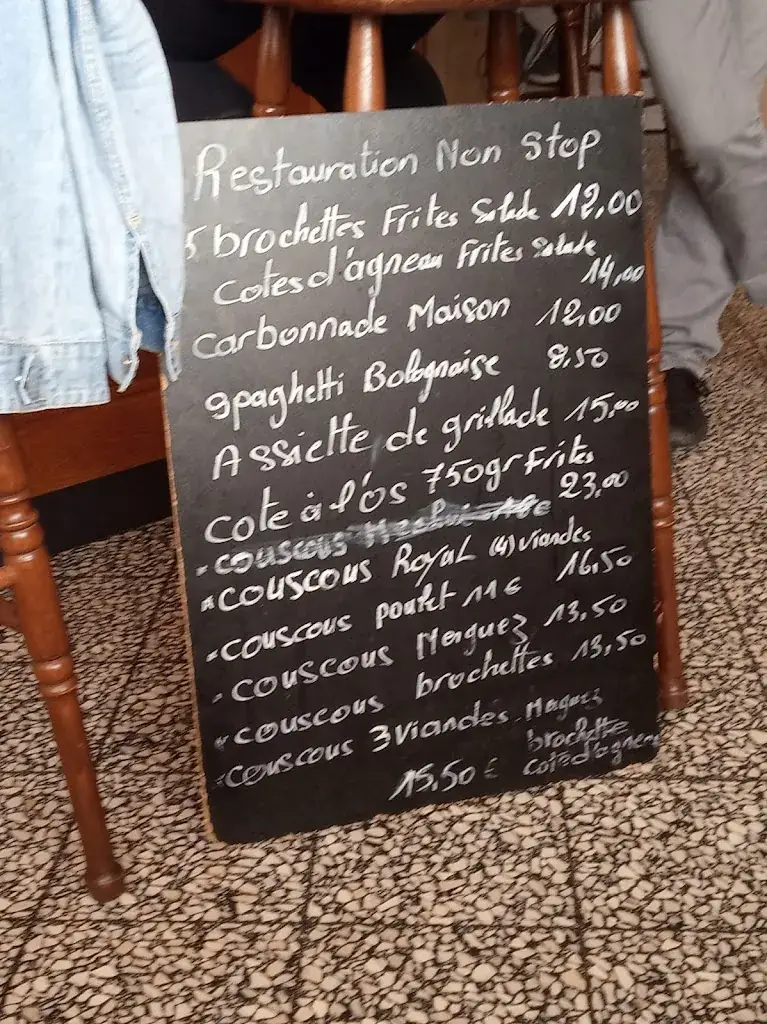 Restauration Non Stop
5 brochettes Frites Salade 12,00
Cotes d'agneau Frites Salade
14,00
Carbonnade Maison 12,00
Spaghetti Bolognaise 8.50
Assiette de grillade 15,00
Cote à l'os 750gr Frites
23,00
- couscous
* couscous Royal (4) viandes
16,50
- couscous poulet 11 €
- couscous Merguez 13,50
* couscous brochettes 13,50
- couscous 3 viandes Merguez
brochette
15,50 € cote d'agneau